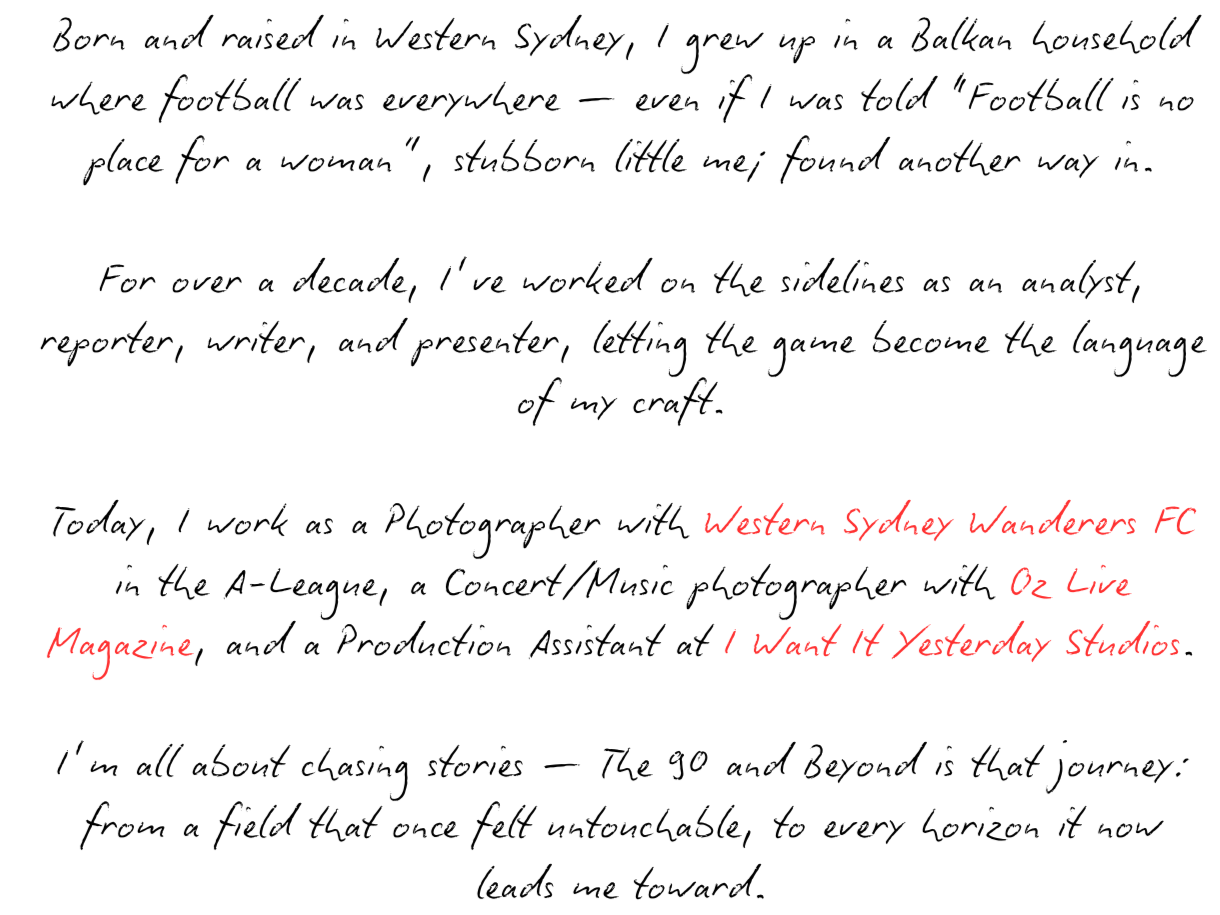 Born and raised in Western Sydney, I grew up in a Balkan household
where football was everywhere — even if I was told "Football is no
place for a woman", stubborn little me; found another way in.
For over a decade, I've worked on the sidelines as an analyst,
reporter, writer, and presenter, letting the game become the language
of my craft.
Today, I work as a Photographer with Western Sydney Wanderers FC
in the A-League, a Concert/Music photographer with Oz Live
Magazine, and a Production Assistant at I Want It Yesterday Studios.
I'm all about chasing stories — The 90 and Beyond is that journey:
from a field that once felt untouchable, to every horizon it now
leads me toward.